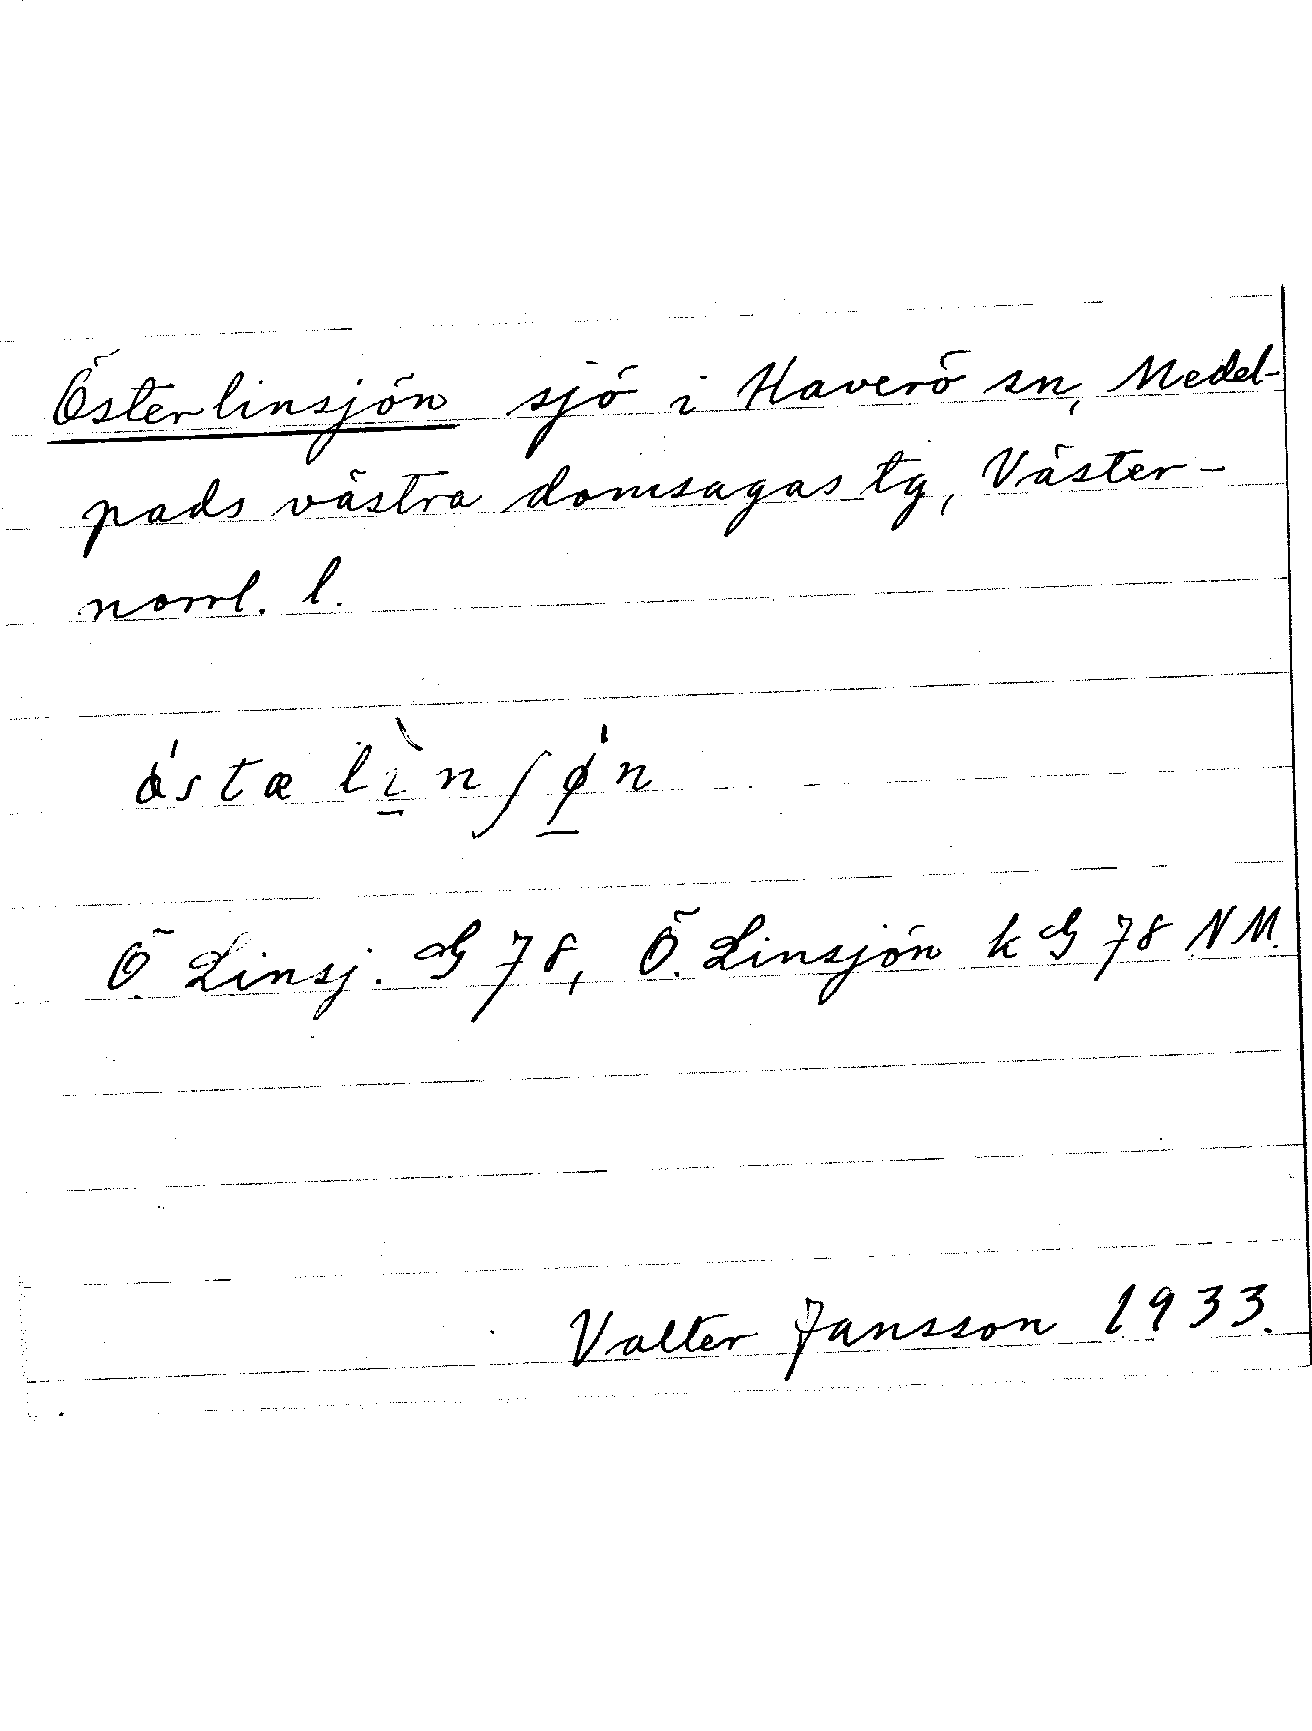 Österlinsjön sjö i Haverö sn, Medel-
pads västra domsagas tg, Väster-
norrl. l.
ǿstæ lı̀nʃǿn
Ö. Linsj. G 78, Ö. Linsjön k G 78 NM.
Valter Jansson 1933.